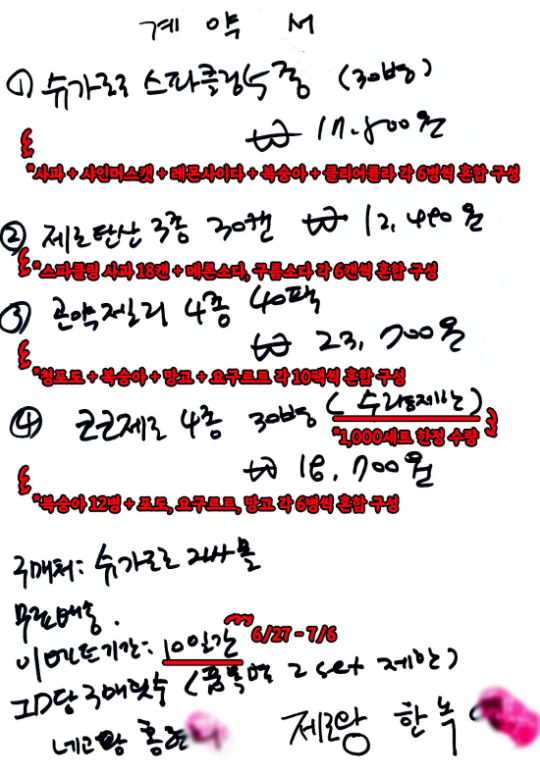 계 약 서
① 슈가로로 스파클링 5종 (30병)
₩ 17,800원
*사과 + 샤인머스캣 + 레몬사이다 + 복숭아 + 클리어콜라 각 6병씩 혼합 구성
② 제로탄산 3종 30캔 ₩ 12,490원
*스파클링 사과 18캔 + 메론소다, 구름소다 각 6캔씩 혼합 구성
③ 곤약젤리 4종 40팩
₩ 23,700원
*청포도 + 복숭아 + 망고 + 요구르트 각 10팩씩 혼합 구성
④ 코코제로 4종 30병 (수량제한)
*1,000세트 한정 수량
₩ 18,700원
*복숭아 12병 + 포도, 요구르트, 망고 각 6병씩 혼합 구성
구매처: 슈가로로 자사몰
무료배송.
이벤트기간: 10일간 6/27 - 7/6
ID당 구매횟수 (품목별 2 set 제한)
네고왕 홍 제로왕 한녹